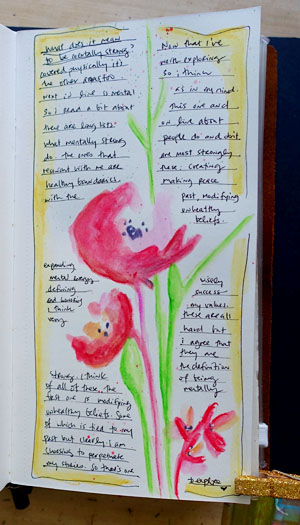 what does it mean
to be mentally strong?
covered physically it's
the other
next in line is mental
So i read a bit about
there are long lists
what mentally strong
do. The ones that
resonate with me are
healthy boundaries
with the
expending
mental energy
defining
and
think
wrong
strong. I think
of all of these.. The
last one is modifying
unhealthy beliefs. Some
of which is tied to my
past but clearly I am
choosing to perpetuate
my stories. So that's one
Now that I've
worth exploring.
So i think
as in my mind
this one and
on line about
people do and don't
are most strongly
these. Creating
making peace
past, modifying
unhealthy
beliefs.
wisely
success
my values.
these are all
hard but
i agree that
they are
the definition
of being
mentally
to explore